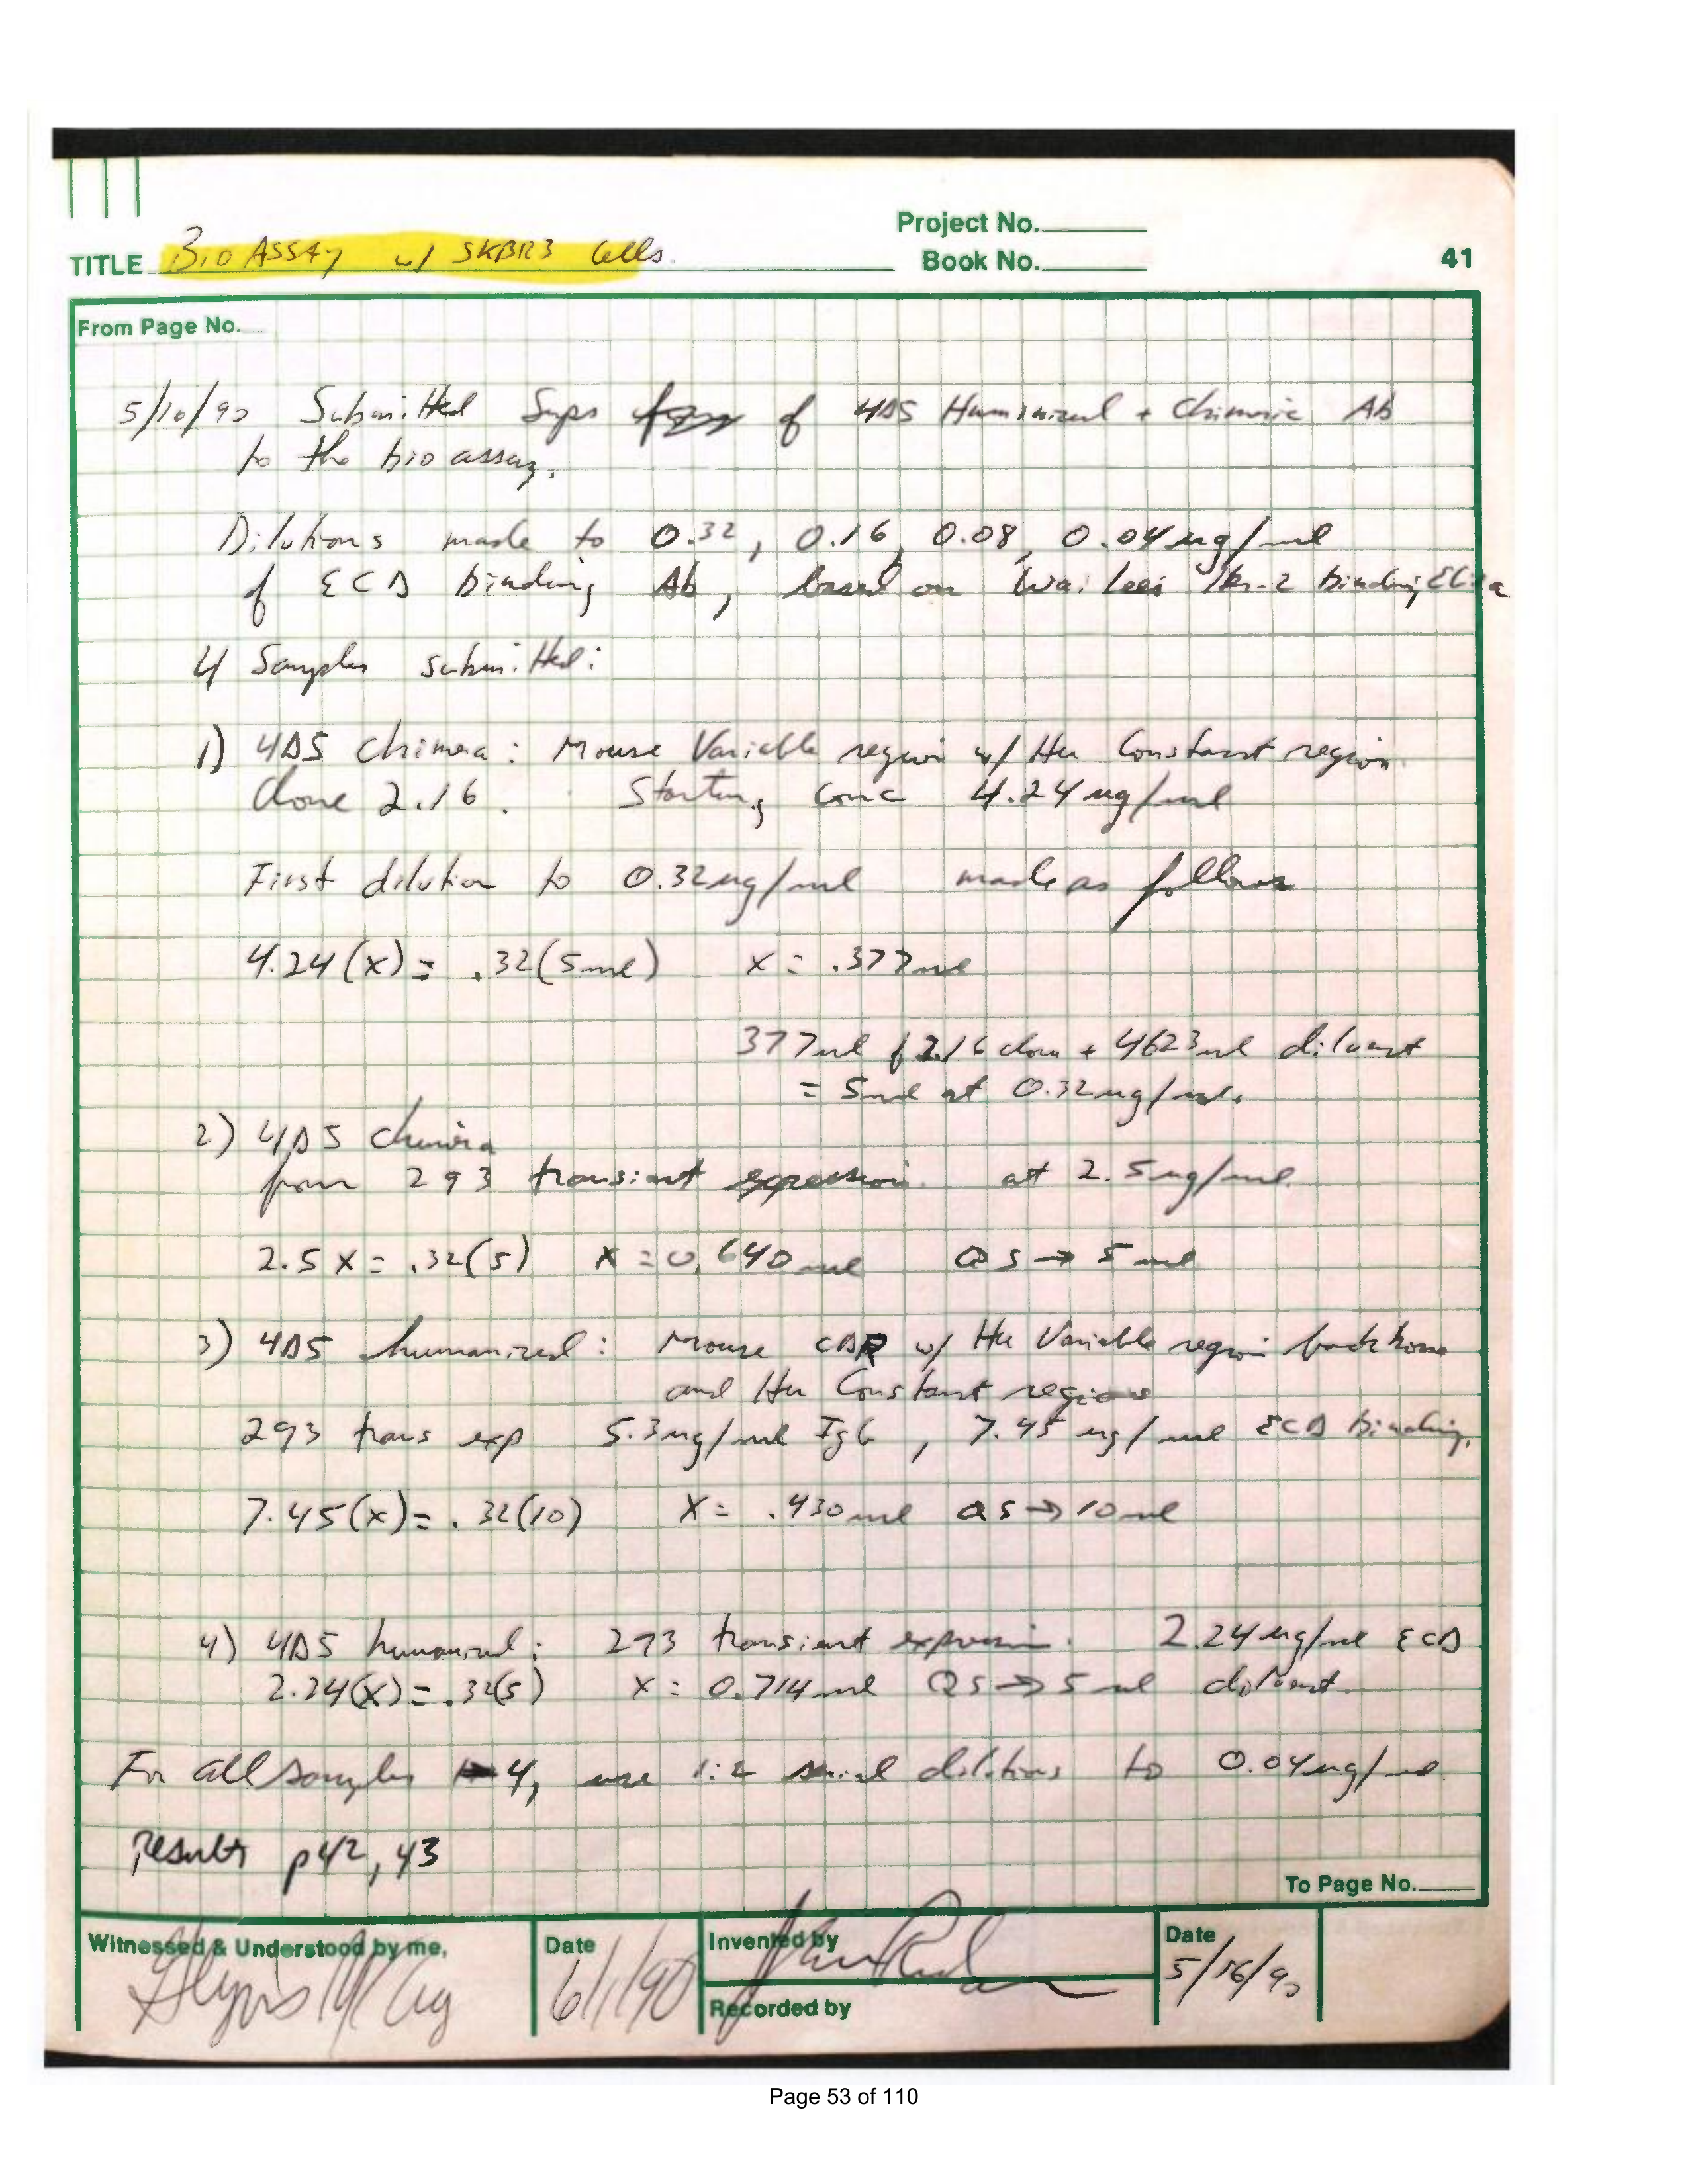 Project No.
TITLE Bio Assay w/ SKBR3 Cells.
Book No.
41
From Page No.
5/10/90 Submitted Sups of 4D5 Humanized + Chimeric Ab
to the bio assay.
Dilutions made to 0.32, 0.16, 0.08, 0.04 ug/ml
of ECD binding Ab, based on Wai Lees Her-2 binding Elisa
4 Samples submitted:
1) 4D5 chimera: Mouse Variable region w/ Hu Constant region
Clone 2.16. Starting conc 4.24 ug/ml
First dilution to 0.32 ug/ml made as follows
4.24(x) = .32(5ml) x = .377ml
377ul of 2.16 clone + 4623ul diluent
= 5ml at 0.32ug/ml.
2) 4D5 chimera
from 293 transient expression. at 2.5ug/ml.
2.5x = .32(5) x = 0.640 ml QS → 5 ml
3) 4D5 humanized: Mouse CDR w/ Hu Variable region backbone
and Hu Constant regions
293 trans exp 5.3ug/ml IgG, 7.45 ug/ml ECD binding.
7.45(x) = .32(10) x = .430 ml QS → 10 ml
4) 4D5 humanized: 293 transient expression. 2.24 ug/ml ECD
2.24(x) = .32(5) x = 0.714 ml QS → 5 ml diluent.
For all samples 4, use 1:2 serial dilutions to 0.04ug/ml.
Results p42, 43
To Page No.
Witnessed & Understood by me,
Date
6/1/90
Invented by
Recorded by
Date
5/16/90
Page 53 of 110